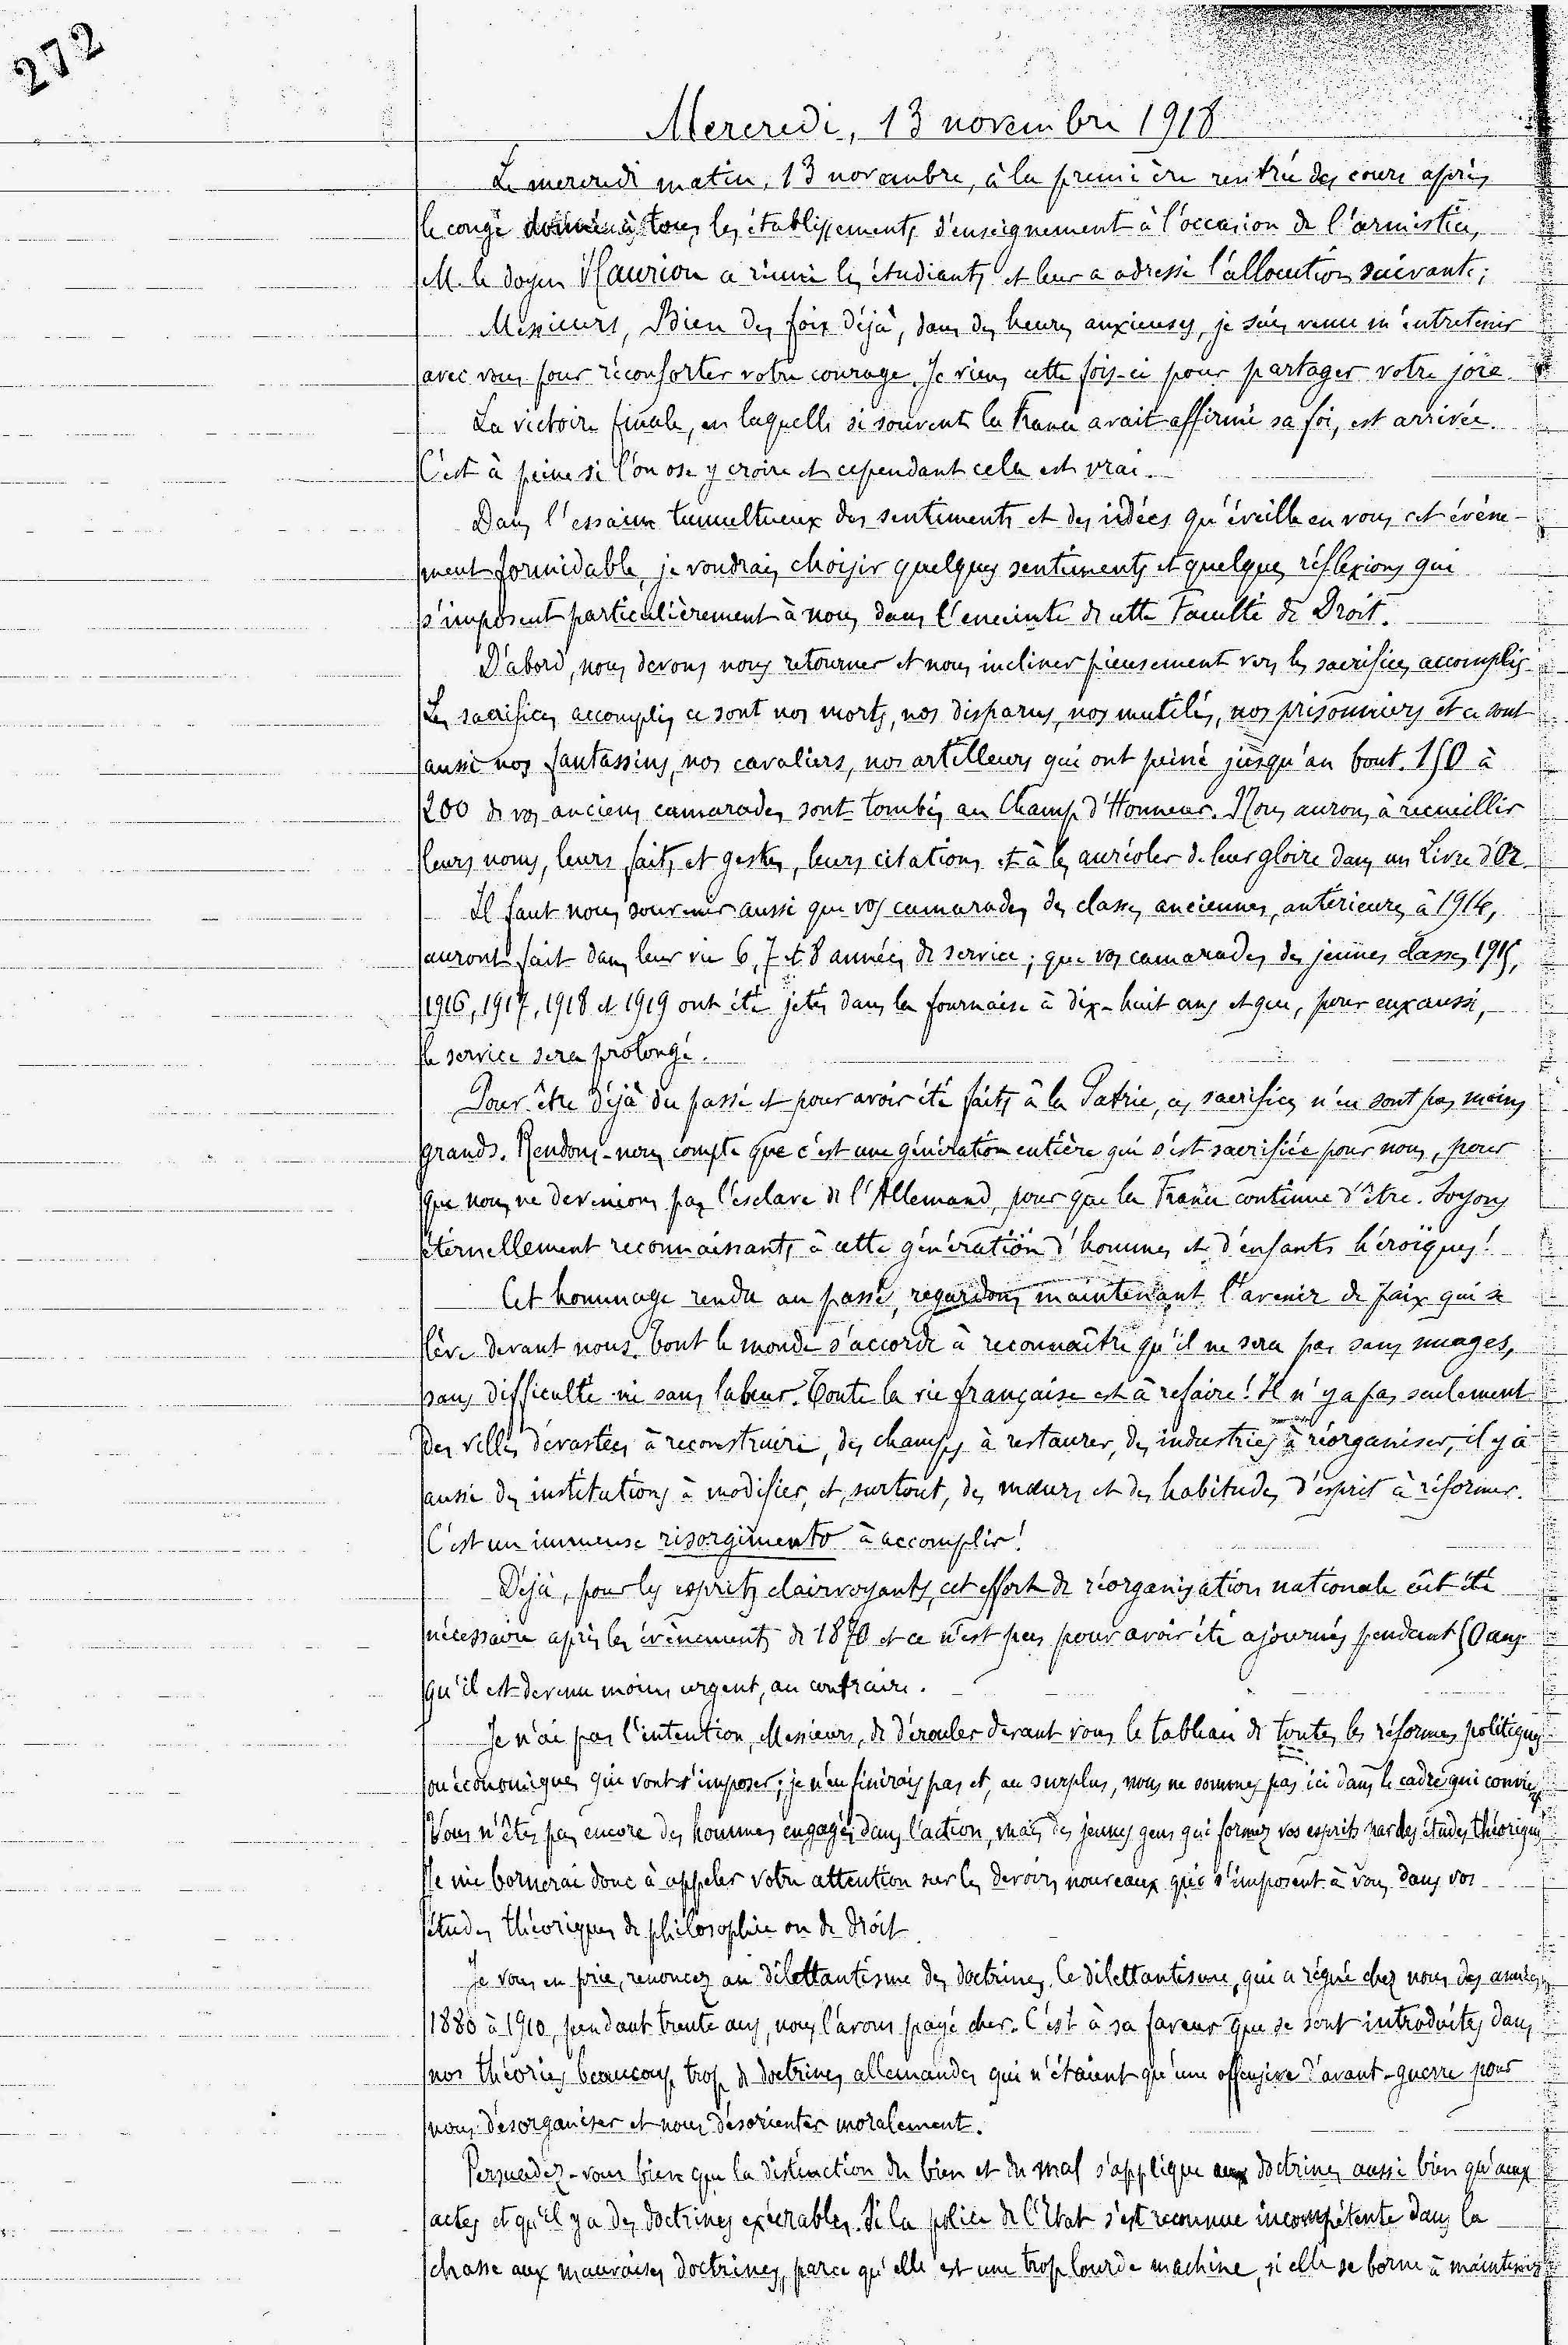 272
Mercredi, 13 novembre 1918
Le mercredi matin, 13 novembre, à la première rentrée des cours après
le congé donné à tous les établissements d'enseignement à l'occasion de l'armistice,
M. le doyen Hauriou a réuni les étudiants et leur a adressé l'allocution suivante;
Messieurs, Bien des fois déjà, dans des heures anxieuses, je suis venu m'entretenir
avec vous pour réconforter votre courage. Je viens cette fois-ci pour partager votre joie.
La victoire finale, en laquelle si souvent la France avait affirmé sa foi, est arrivée.
C'est à peine si l'on ose y croire et cependant cela est vrai.
Dans l'essaim tumultueux des sentiments et des idées qu'éveille en vous cet évène-
ment formidable, je voudrais choisir quelques sentiments et quelques réflexions qui
s'imposent particulièrement à nous dans l'enceinte de cette Faculté de Droit.
D'abord, nous devons nous retourner et nous incliner pieusement vers les sacrifices accomplis.
Les sacrifices accomplis ce sont nos morts, nos disparus, nos mutilés, nos prisonniers et ce sont
aussi nos fantassins, nos cavaliers, nos artilleurs qui ont peiné jusqu'au bout. 150 à
200 de vos anciens camarades sont tombés au Champ d'Honneur. Nous aurons à recueillir
leurs noms, leurs faits et gestes, leurs citations et à les auréoler de leur gloire dans un Livre d'Or.
Il faut nous souvenir aussi que vos camarades des classes anciennes, antérieures à 1914,
auront fait dans leur vie 6, 7 et 8 années de service; que vos camarades des jeunes classes 1915,
1916, 1917, 1918 et 1919 ont été jetés dans la fournaise à dix-huit ans et que, pour eux aussi,
le service sera prolongé.
Pour être déjà du passé et pour avoir été faits à la Patrie, ces sacrifices n'en sont pas moins
grands. Rendons-nous compte que c'est une génération entière qui s'est sacrifiée pour nous, pour
que nous ne devenions pas l'esclave de l'Allemand, pour que la France continue d'être. Soyons
éternellement reconnaissants à cette génération d'hommes et d'enfants héroïques!
Cet hommage rendu au passé, regardons maintenant l'avenir de paix qui se
lève devant nous. Tout le monde s'accorde à reconnaître qu'il ne sera pas sans nuages,
sans difficulté ni sans labeur. Toute la vie française est à refaire! Il n'y a pas seulement
des villes dévastées à reconstruire, des champs à restaurer, des industries à réorganiser, il y a
aussi des institutions à modifier, et, surtout, des mœurs et des habitudes d'esprit à réformer.
C'est un immense risorgimento à accomplir!
Déjà, pour les esprits clairvoyants, cet effort de réorganisation nationale eût été
nécessaire après les évènements de 1870 et ce n'est pas pour avoir été ajournés pendant 50 ans
qu'il est devenu moins urgent, au contraire.
Je n'ai pas l'intention, Messieurs, de dérouler devant vous le tableau de toutes les réformes politiques
ou économiques qui vont s'imposer; je n'en finirais pas et, au surplus, nous ne sommes pas ici dans le cadre qui convient.
Vous n'êtes pas encore des hommes engagés dans l'action, mais des jeunes gens qui formez vos esprits par des études théoriques.
Je me bornerai donc à appeler votre attention sur les devoirs nouveaux qui s'imposent à vous dans vos
études théoriques de philosophie ou de droit.
Je vous en prie, renoncez au dilettantisme des doctrines. Ce dilettantisme, qui a régné chez nous des années
1880 à 1910, pendant trente ans, nous l'avons payé cher. C'est à sa faveur que se sont introduites dans
nos théories beaucoup trop de doctrines allemandes qui n'étaient qu'une offensive d'avant-guerre pour
nous désorganiser et nous désorienter moralement.
Persuadez-vous bien que la distinction du bien et du mal s'applique aux doctrines aussi bien qu'aux
actes et qu'il y a des doctrines exécrables. Si la police de l'Etat s'est reconnue incompétente dans la
chasse aux mauvaises doctrines, parce qu'elle est une trop lourde machine, si elle se borne à maintenir